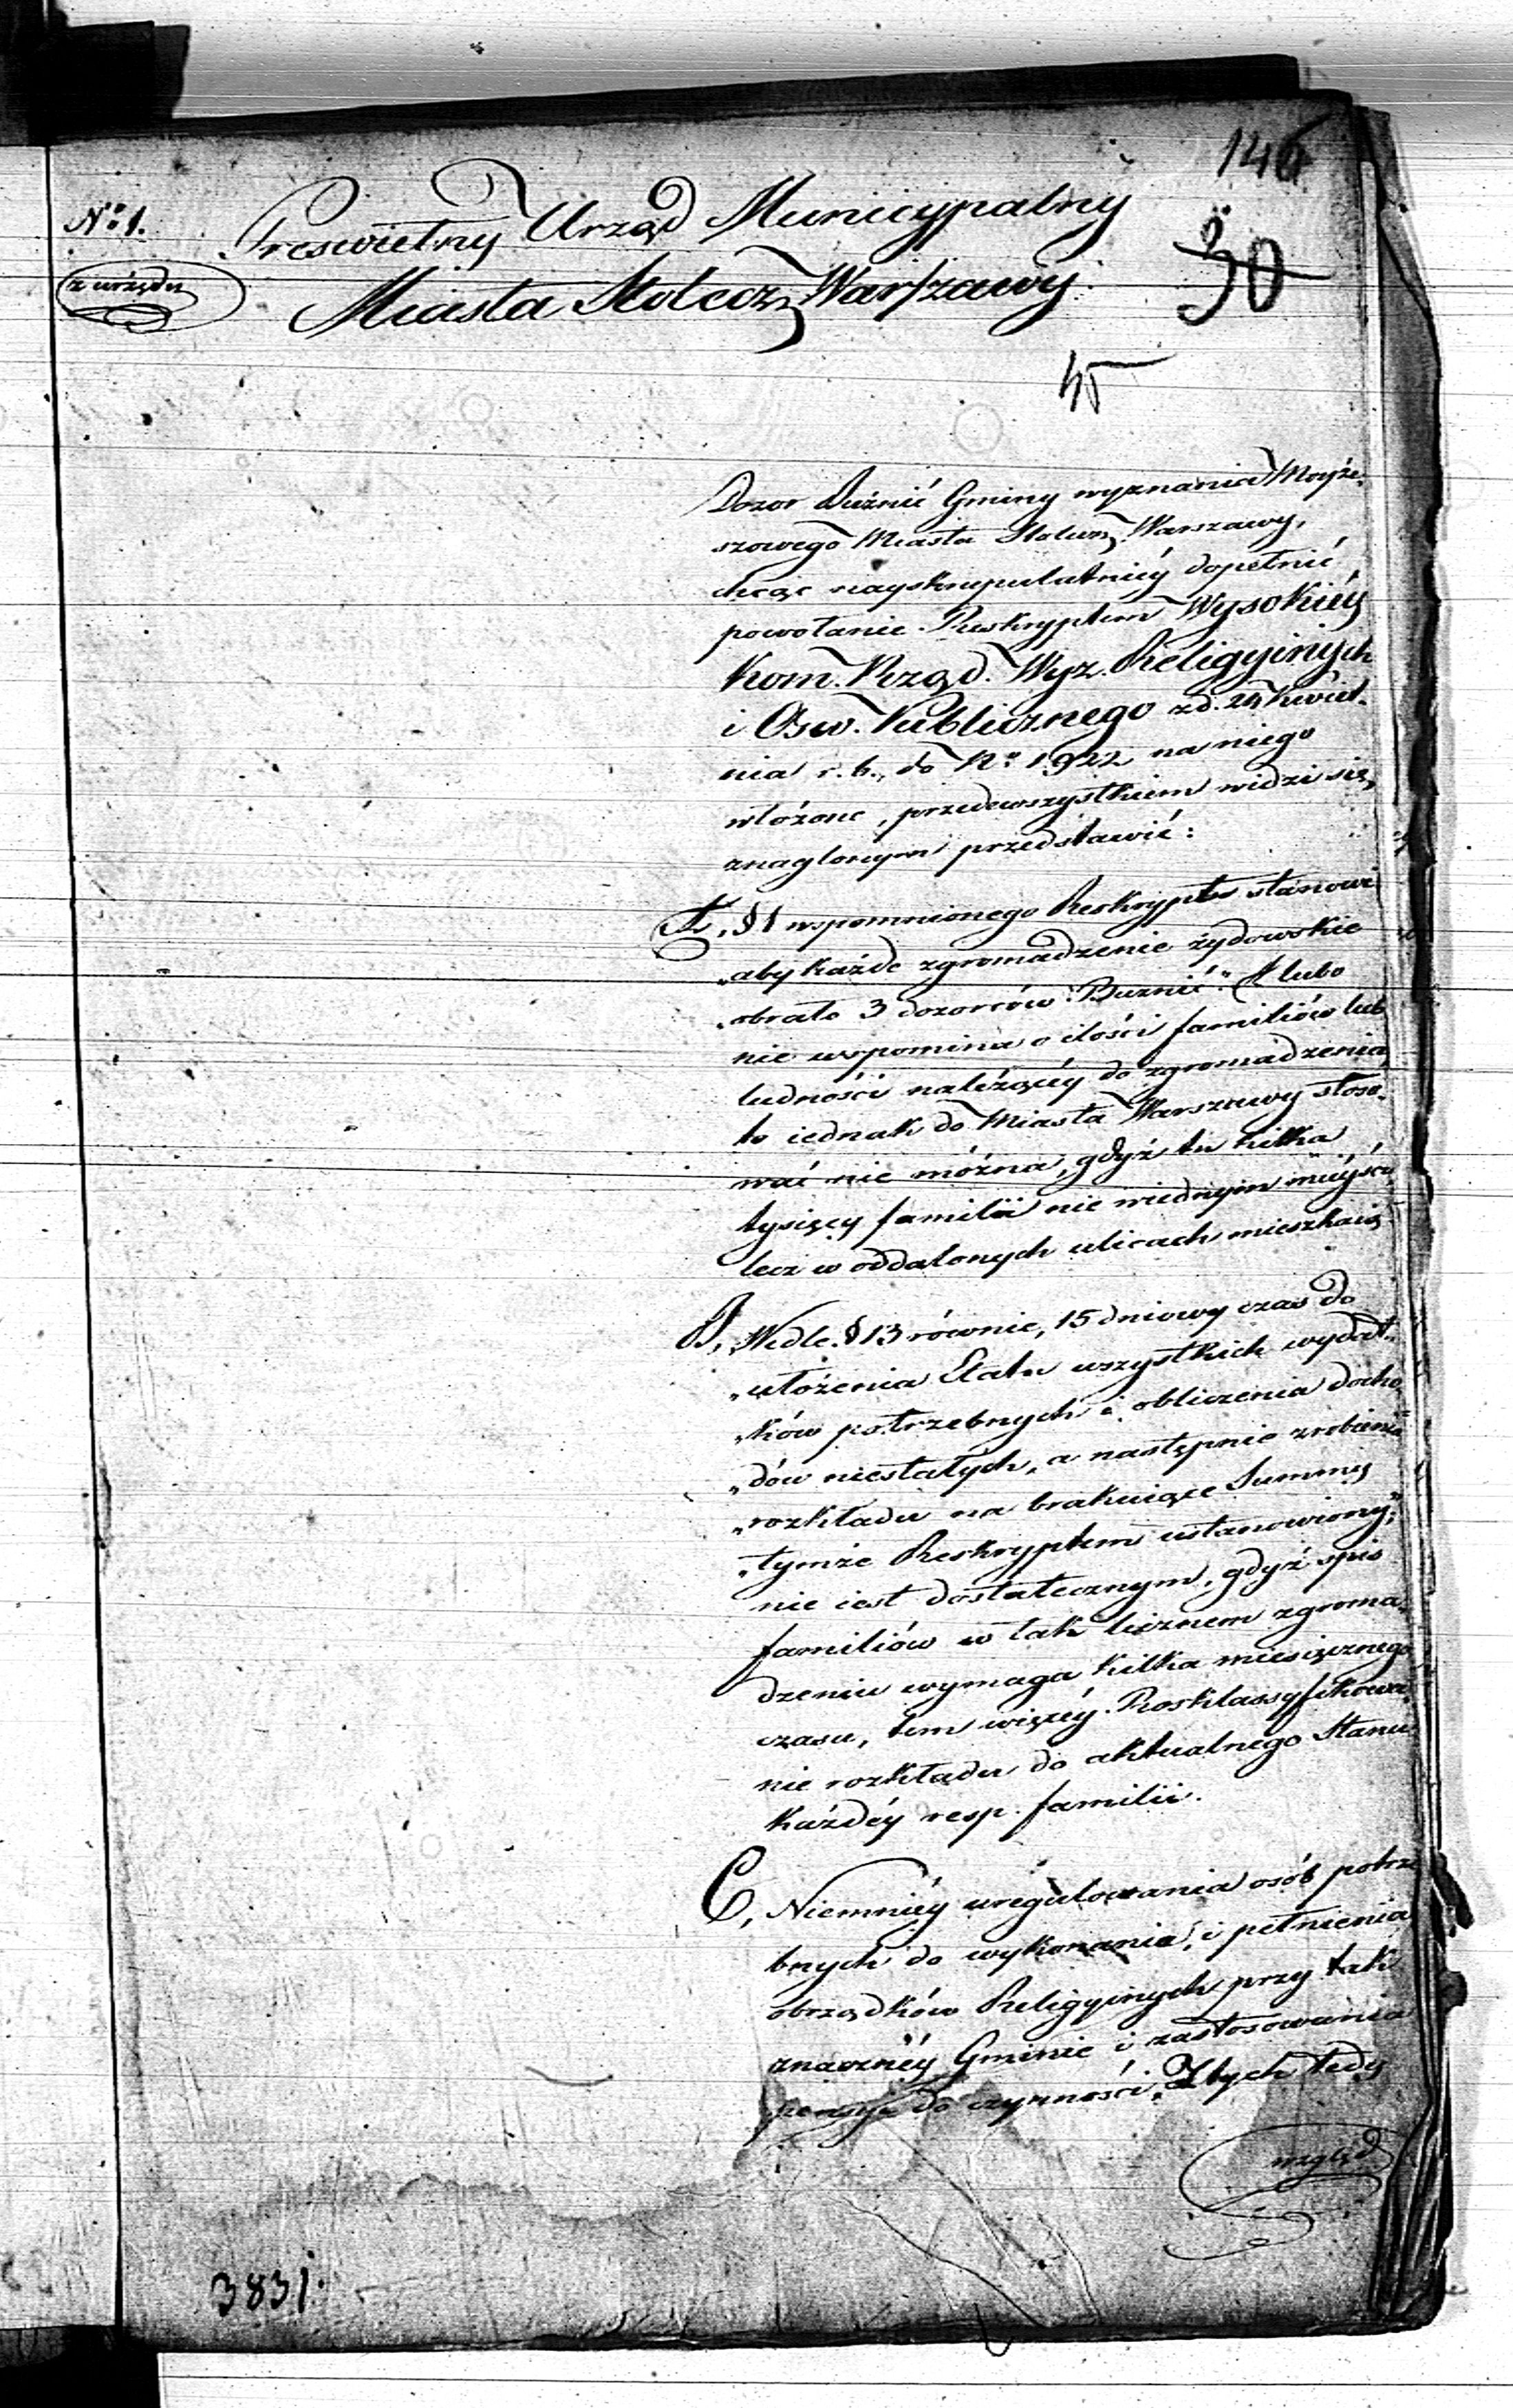 146
No: 1.
Preswietny Urząd Municypalny
z urzędu
Miasta Stołecz. Warszawy.
30
45
Dozor Buźnić Gminy wyznania Moyże-
szowego Miasta Stołecz. Warszawy,
chcąc nayskrupulatniéy dopełnić
powołanie Reskryptem Wysokiéy
Kom. Rząd. Wyz. Religyinych
i Ośw. Publicznego z d. 24 Kwiet-
nia r. b., do No: 1922 na niego
włożone, przedewszystkiem widzi się
znaglonym przedstawić:
A, §1 wspomnionego Reskryptu stanowi
„aby każde zgromadzenie żydowskie
„obrało 3 dozorców Buźnić." A lubo
nie wspomina o ilości familiów lub
ludności należącéy do zgromadzenia
to iednak do Miasta Warszawy stoso-
wać nie można, gdyż tu kilka
tysięcy familii nie wiednym mieyscu
lecz w oddalonych ulicach mieszkaią
B, Wedle §13 równie, 15 dniowy czas do
„ułożenia Etatu wszystkich wydat-
„ków potrzebnych i obliczenia docho-
„dów niestałych, a następnie zrobienia
„rozkładu na brakuiące Summy
„tymże Reskryptem ustanowiony;"
nie iest dostatecznym, gdyż spis
familiów w tak licznem zgroma-
dzeniu wymaga kilka miesięcznego
czasu, tem więcéy Rosklassyfikowa-
nie rozkładu do aktualnego Stanu
każdéy resp. familii.
C, Niemniéy uregulowania osób potrze-
bnych do wykonania, i pełnienia
obrządków Religyinych przy tak
znacznéy Gminie i zastosowania
pensyi do czynności. Z tych tedy
względ.
3831.